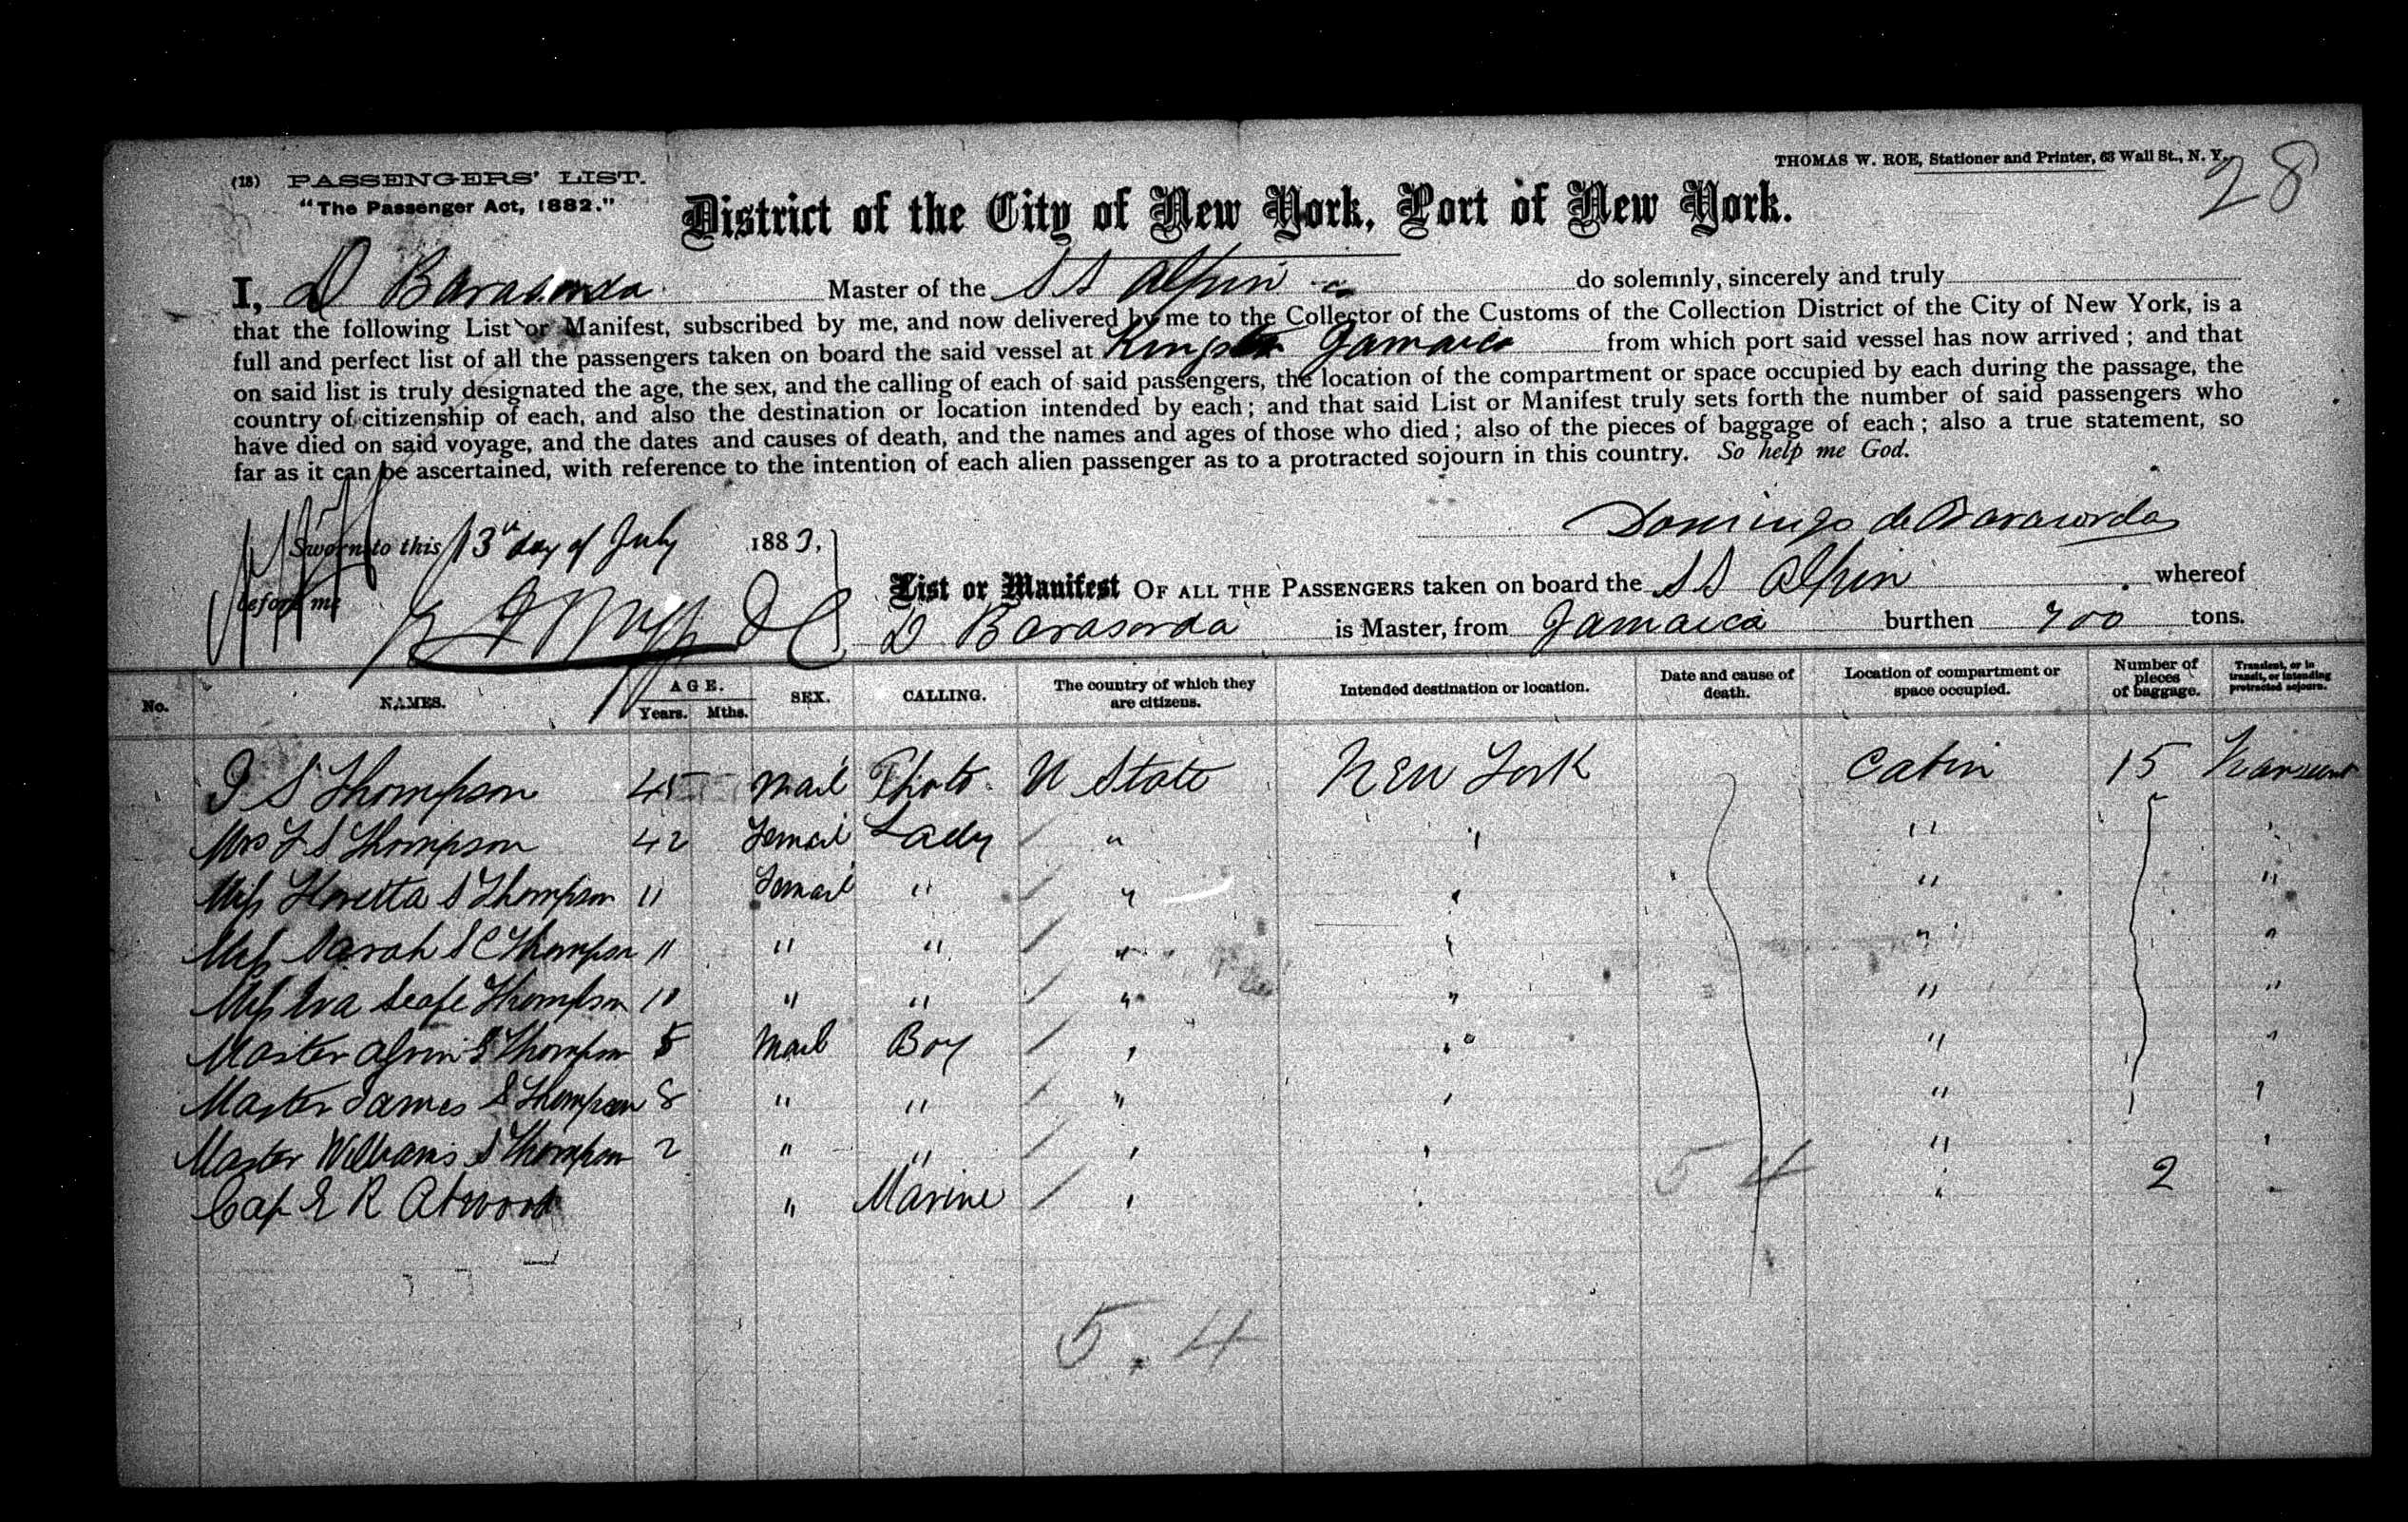 28
THOMAS W. ROE, Stationer and Printer, 63 Wall St., N. Y.
(18) PASSENGERS' LIST.
"The Passenger Act, 1882."
District of the City of New York, Port of New York.
I, D Barasorda Master of the S S Alpin do solemnly, sincerely and truly
that the following List or Manifest, subscribed by me, and now delivered by me to the Collector of the Customs of the Collection District of the City of New York, is a
full and perfect list of all the passengers taken on board the said vessel at Jamaica from which port said vessel has now arrived; and that
on said list is truly designated the age, the sex, and the calling of each of said passengers, the location of the compartment or space occupied by each during the passage, the
country of citizenship of each, and also the destination or location intended by each; and that said List or Manifest truly sets forth the number of said passengers who
have died on said voyage, and the dates and causes of death, and the names and ages of those who died; also of the pieces of baggage of each; also a true statement, so
far as it can be ascertained, with reference to the intention of each alien passenger as to a protracted sojourn in this country. So help me God.
Sworn to this 13th day of July 1883,
Domingo de Barasorda
before me
List or Manifest OF ALL THE PASSENGERS taken on board the S S Alpin whereof
D Barasorda is Master, from Jamaica burthen 700 tons.
No. NAMES. AGE. Years. Mths. SEX. CALLING. The country of which they are citizens. Intended destination or location. Date and cause of death. Location of compartment or space occupied. Number of pieces of baggage. Transient, or in transit, or intending protracted sojourn.
S Thompson 45 Mail Photo U State New York Cabin 15 Transient
Mrs S Thompson 42 Femail Lady " " " "
Miss Floretta S Thompson 11 Femail " " " " "
Miss Sarah S C Thompson 11 " " " " " "
Miss Eva Seafe Thompson 10 " " " " " "
Master Thompson 5 Mail Boy " " " "
Master James S Thompson 8 " " " " " "
Master Williams S Thompson 2 " " " " " "
Cap E R Atwood " Marine " " " 2 "
5 4
5.4